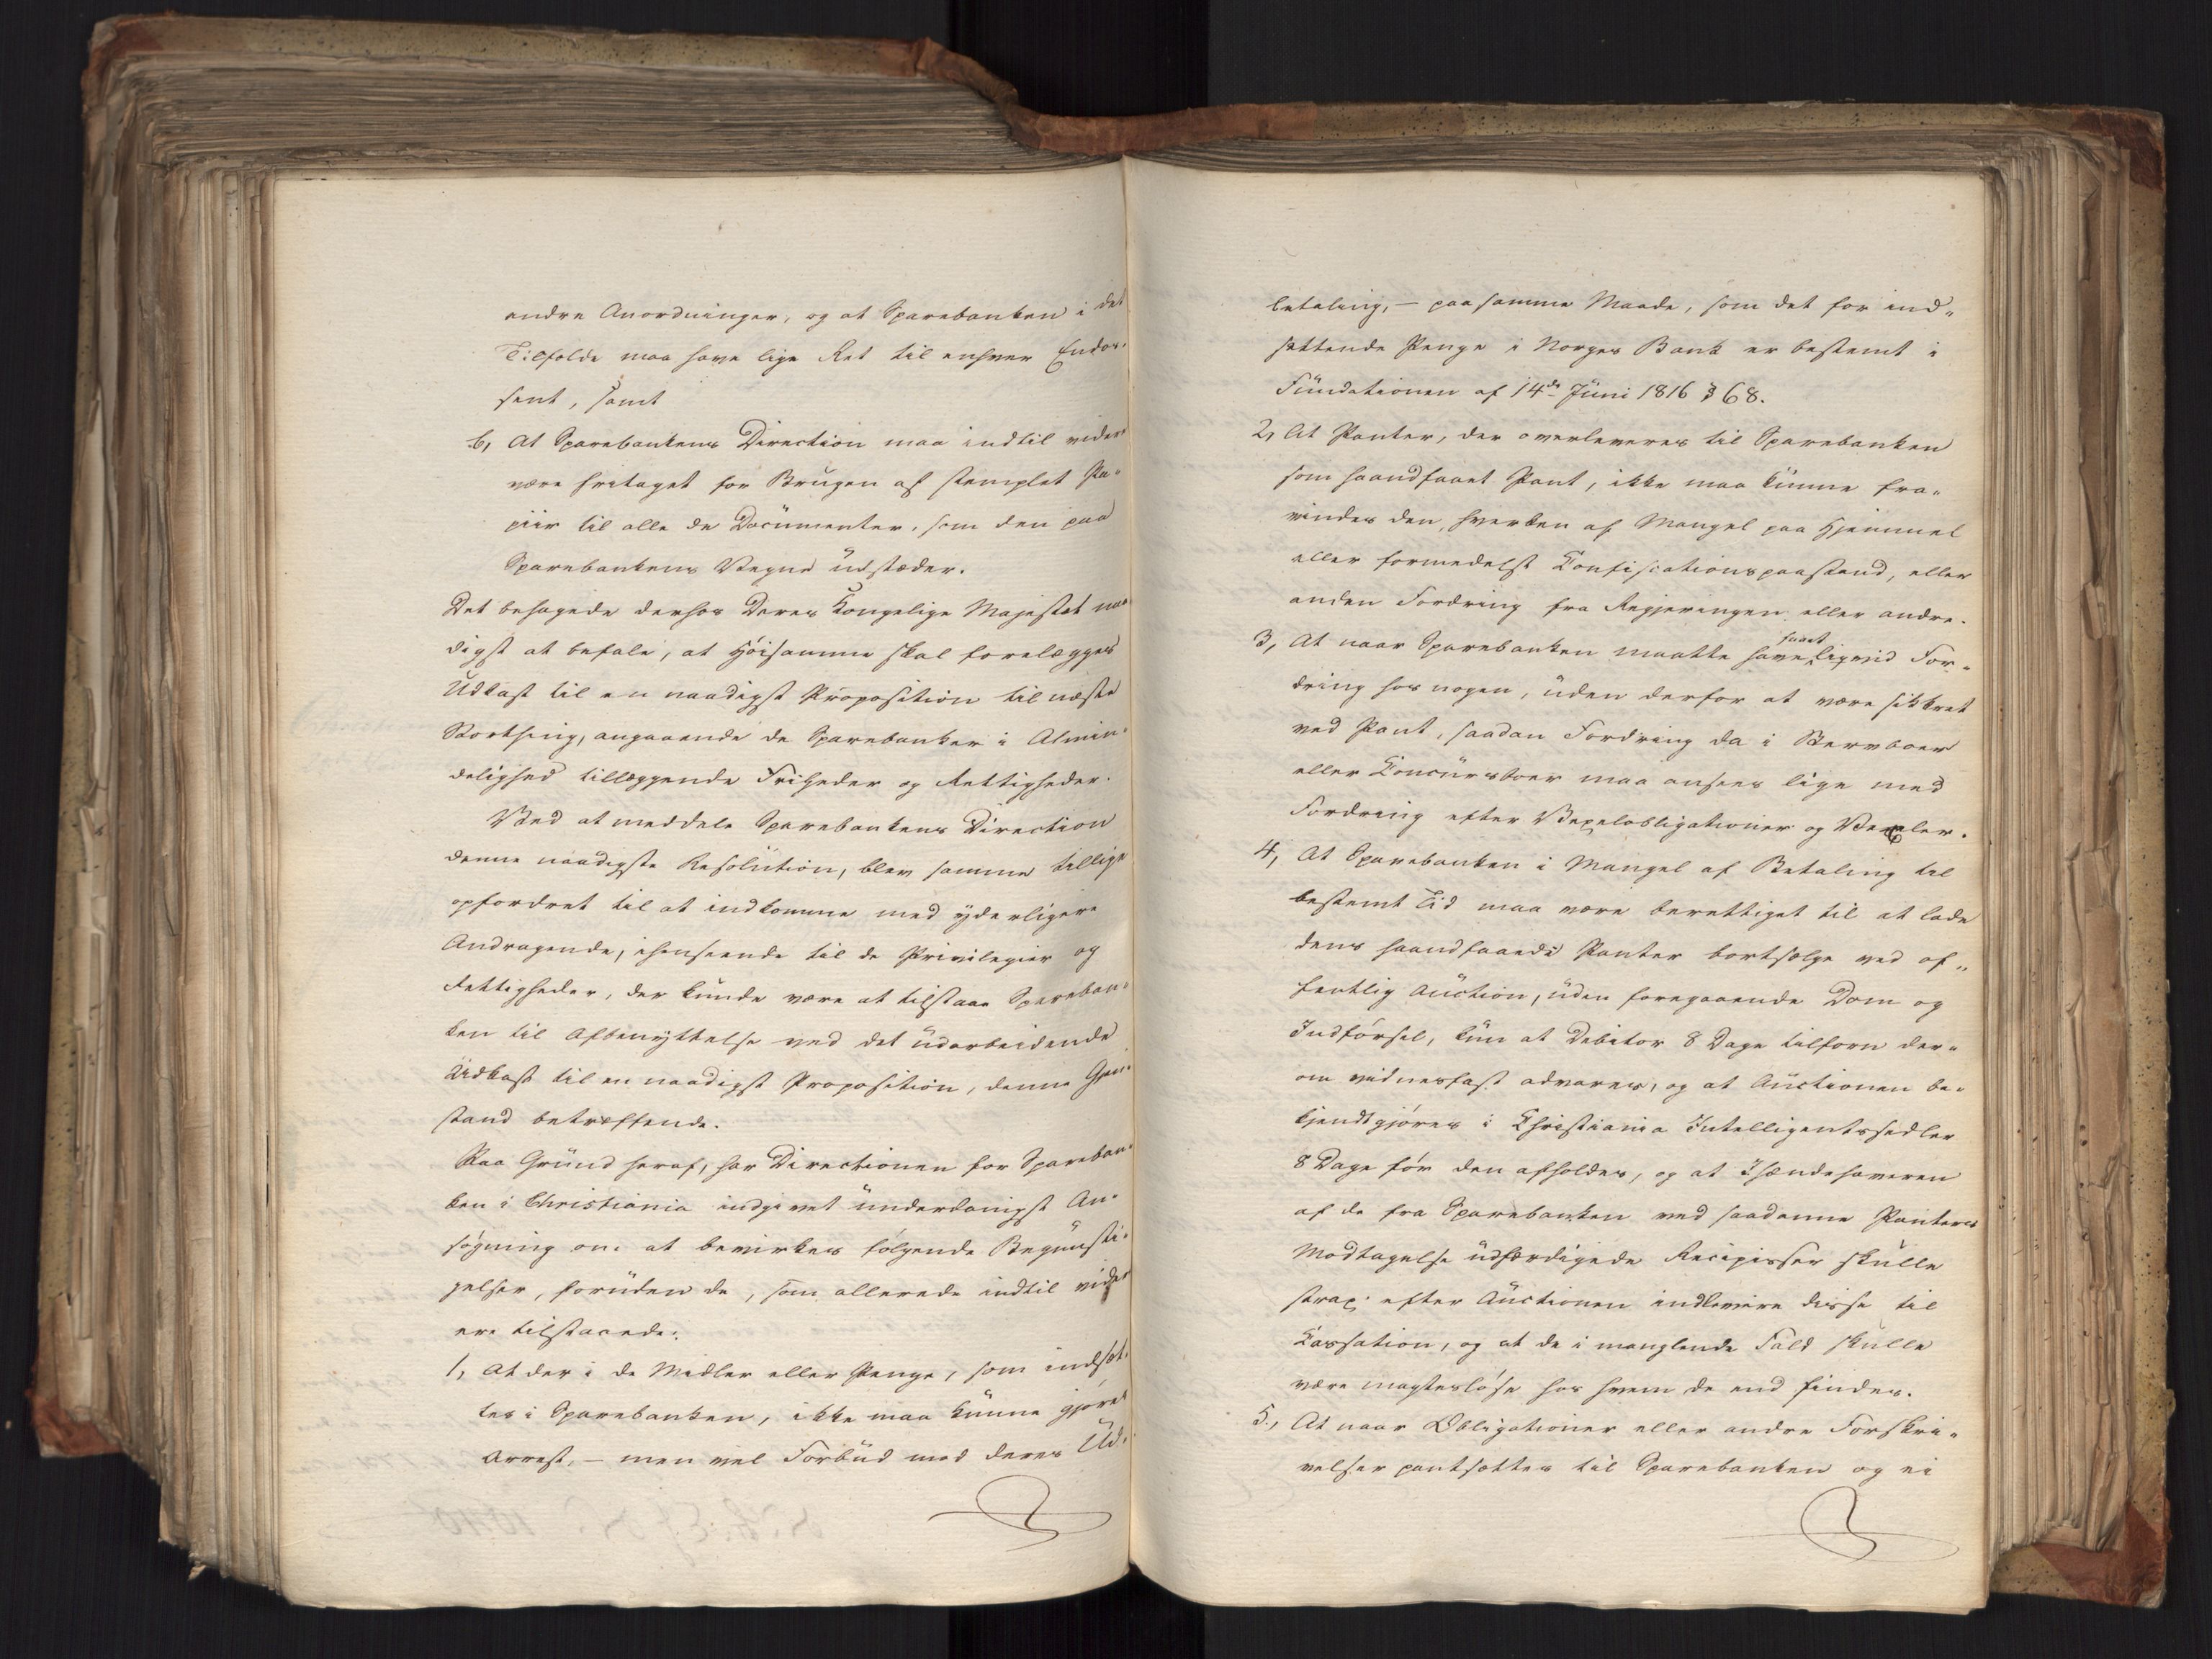 andre Anordninger, og at Sparebanken i det
Tilfælde maa have lige Ret til enhver Endos¬
sent, samt
6, At Sparebankens Direction maa indtil videre
være fritaget for Brugen af stemplet Pa¬
piir til alle de Documenter, som den paa
Sparebankens Vegne udstæder.
Det behagede derhos Deres Kongelige Majestæt naa¬
digst at befale, at Høisamme skal forelægges
Udkast til en naadigst Proposition til næste
Storthing, angaaende de Sparebanker i Almin¬
delighed tillæggende Friheder og Rettigheder.
Ved at meddele Sparebankens Direction
denne naadigste Resolution, blev samme tillige
opfordret til at indkomme med yderligere
Andragende, ihenseende til de Privilegier og
Rettigheder, der kunde være at tilstaae Spareban¬
ken til Afbenyttelse ved det udarbeidende
Udkast til en naadigst Proposition, denne Gjen¬
stand betræffende.
Paa Grund heraf, har Directionen for Spareban¬
ken i Christiania indgivet underdanigst An¬
søgning om at bevirkes følgende Begunsti¬
gelser, foruden de, som allerede indtil videre
ere tilstaaede:
1, At der i de Midler eller Penge, som indsæt¬
tes i Sparebanken, ikke maa kunne gjøres
Arrest, — men vel Forbud mod deres Ud¬
betaling, — paa samme Maade, som det for ind¬
sættende Penge i Norges Bank er bestemt i
Fundationen af 14de Juni 1816 § 68.
2, At Panter, der overleveres til Sparebanken
som haandfaaet Pant, ikke maa kunne fra¬
vindes den, hverken af Mangel paa Hjemmel
eller formedelst Confiscationspaastand, eller
anden Fordring fra Regjeringen eller andre.
3, At naar Sparebanken maatte have faaet liqvid For¬
dring hos nogen, uden derfor at være sikkret
ved Pant, saadan Fordring da i Stervboer
eller Concursboer maa ansees lige med
Fordring efter Vexelobligationer og Vexler.
4, At Sparebanken i Mangel af Betaling til
bestemt Tid maa være berettiget til at lade
dens haandfaaede Panter bortsælge ved of¬
fentlig Auction, uden foregaaende Dom og
Indførsel, kun at Debitor 8 Dage tilforn der¬
om vidnesfast advares, og at Auctionen be¬
kjendtgjøres i Christiania Intelligentssedler
8 Dage før den afholdes, og at Ihændehaveren
af de fra Sparebanken ved saadanne Panters
Modtagelse udfærdigede Recipisser skulle
strax efter Auctionen indlevere disse til
Cassation, og at de i manglende Fald skulle
være magtesløse hos hvem de end findes.
5., At naar Obligationer eller andre Forskri¬
velser pantsættes til Sparebanken og ei